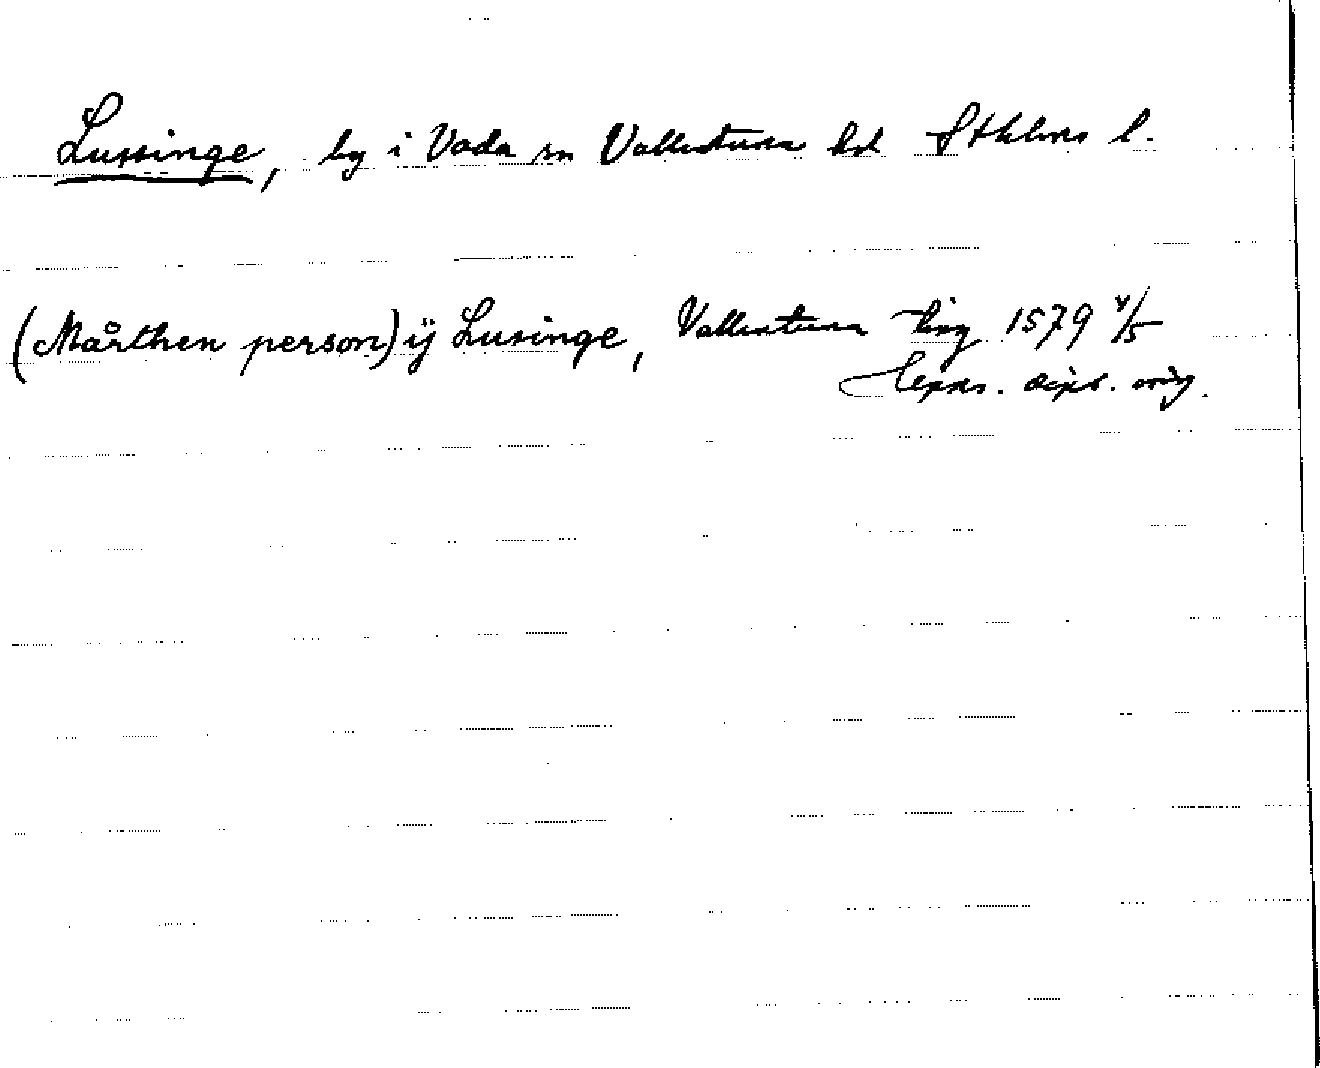 Lussinge, by i Vada sn Vallentuna hd Sthlms l.
(Mårthen person) ÿ Lusinge, Vallentuna ting 1579 4/5
Uppss. dipl. orig.